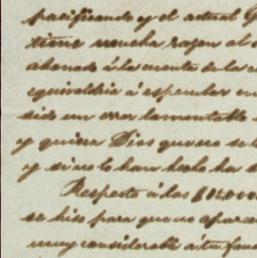 pacificando y el actual G
tiene mucha razon al
abonado á la cuenta de la
equivaldria á espender en
sido un error lamentable
y quiera Dios que no se
y si no lo han hecho ha
Respecto á los $10.000
se hizo para que no aparec
muy considerable á tu fav